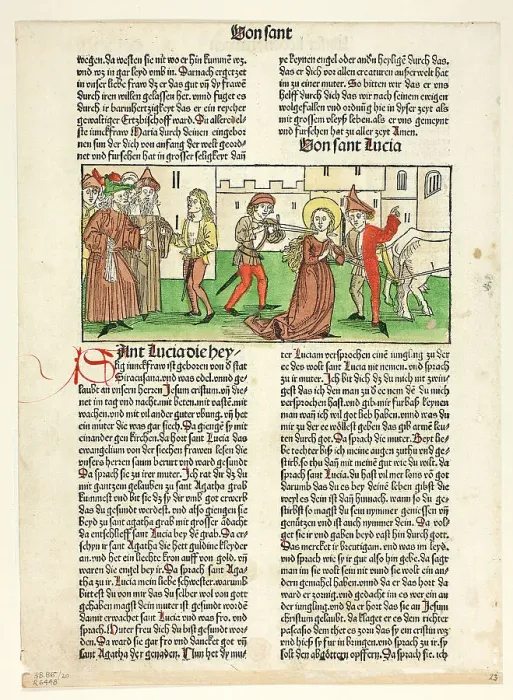 Von sant
wegen. da westen sie nit wo er hin kummen wz.
vnd wz in gar leyd vmb in. Darnach ergetzet
in vnser liebe fraw dz er das gut vn̄ dy frawē
durch iren willen gelassen het. vnnd fuget es
durch ir barmhertzigkeyt das er ein reycher
gewaltiger Ertzbischoff ward. Du alleredel-
ste iunckfraw Maria durch deinen eingebor
nen sun der dich von anfang der welt geord-
net vnd fursehen hat in grosser seligkeyt dan̄
ye keynen engel oder andn̄ heylige durch das.
das er dich vor allen creaturen außerwelt hat
im zu einer muter. So bitten wir das er vns
helff durch dich das wir nach seinem ewigen
wolgefallen vnd ordnūg hie in dyser zeyt als
mit grossem vleyß leben. als er vns gemeynt
vnd fursehen hat zu aller zeyt Amen.
Von sant Lucia
Sant Lucia die hey-
lig iunckfraw ist geboren von d̄ stat
Siracusana. vnd was edel. vnnd ge-
laubt an vnsern herren Jesum cristum. vn̄ die-
net im tag vnd nacht. mit beten. mit vastē mit
wachen. vnd mit vil ander guter vbung. vn̄ het
ein muter die was gar siech. Da gienge sy mit
einander gen kirchen. da hort sant Lucia das
ewangelium von der siechen frawen lesen die
vnsers herren saum berurt vnd ward gesundt
Da sprach sie zu irer muter. Ich rat dir dz du
mit gantzen gelauben zu sant Agatha grab
kummest vnd bit sie dz sy dir vmb got erwerb
das du gesundt werdest. vnd also giengen sie
beyd zu sant agatha grab mit grosser ādacht
da entschlieff sant Lucia bey dē grab. Da er-
schyn ir sant Agatha die hett guldine kleyder
an. vnd het ein liechte kron auff von gold. vn̄
waren die engel bey ir. Da sprach sant Aga-
tha zu ir. Lucia mein liebe schwester. warumb
bittest du von mir das du selber wol von gott
gehaben magst dein muter ist gesundt wordē
damit erwachet sant Lucia vnd was fro. vnd
sprach. Muter freu dich du bist gesundt wor-
den. Da ward sie gar fro vnd dancket got vn̄
sant Agatha der genaden. Nun het dy mu-
ter Luciam versprochen einē iungling zu der
ee des wolt sant Lucia nit nemen. vnd sprach
zu ir muter. Ich bit dich dz du mich nit zwin-
gest das ich den man zu d̄ ee nem dē du mich
versprochen hast. vnd gib mir furbaß keynen
man wan̄ ich wil got lieb haben. vnnd was du
mir zu der ee wöllest geben das gib armē leu-
ten durch got. Da sprach die muter. Beyt lie-
be tochter biß ich meine augen zuthu vnd ge-
stirb. so thu dan̄ mit meinē gut wie du wilt. da
sprach sant Lucia. du hast vil mer lons vō got
darumb das du es bey deinē leben gibst die
weyl es dein ist dan̄ hinnach. wann so du ge-
stirbst so magst du sein nymmer geniessen vn̄
genützen vnd ist auch nymmer dein. Da vol-
get sie ir vnd gaben beyd vast hin durch gott.
Das mercket ir breutigam. vnd was im leyd.
vnd sprach wie sy ir gut also hin gebe. da sagt
man im sie wolt sein nit vnnd sie wolt ein an-
dern gemahel haben. vnnd da er das hort da
ward er zornig. vnd gedacht im es wer ein an
der iungling. vnd da er hort das sie an Jesum
christum gelaubt. da klaget er es dem richter
pascasio dem thet es zorn das sy ein cristin wz
vnd hieß sy fur in bringen. vnd sprach zu ir. sy
solt den abgöttern opffern. Da sprach sie. ich